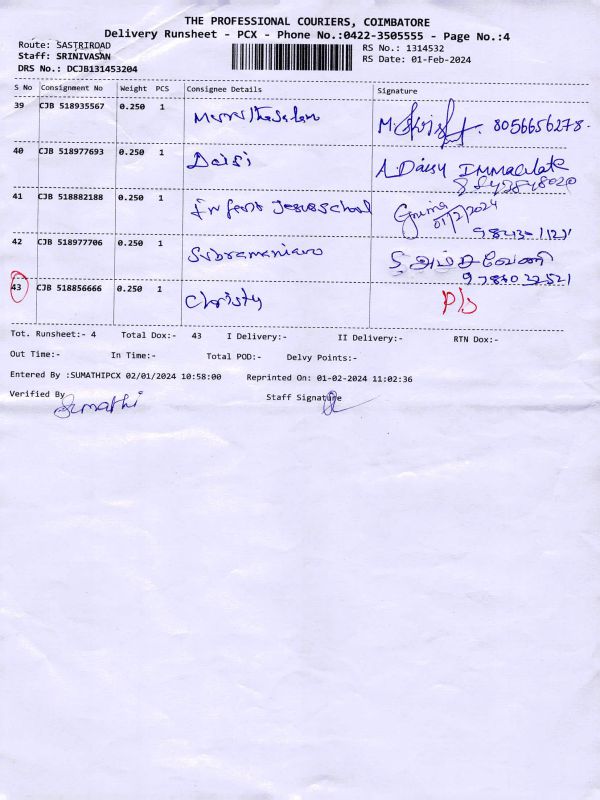 THE PROFESSIONAL COURIERS, COIMBATORE
Delivery Runsheet - PCX - Phone No.:0422-3505555 - Page No.:4
Route: SASTRIROAD
RS No.: 1314532
Staff: SRINIVASAN
RS Date: 01-Feb-2024
DRS No.: DCJB131453204
S No Consignment No Weight PCS Consignee Details Signature
39 CJB 518935567 0.250 1 8056656278
40 CJB 518977693 0.250 1 Daisi A. Daisy IMMaculate
41 CJB 518882188 0.250 1 Infent Jesus school
01/2/2024
42 CJB 518977706 0.250 1 Subramaniam
43 CJB 518856666 0.250 1 Christy
Tot. Runsheet:- 4 Total Dox:- 43 I Delivery:- II Delivery:- RTN Dox:-
Out Time:- In Time:- Total POD:- Delvy Points:-
Entered By :SUMATHIPCX 02/01/2024 10:58:00 Reprinted On: 01-02-2024 11:02:36
Verified By Staff Signature
Sumathi